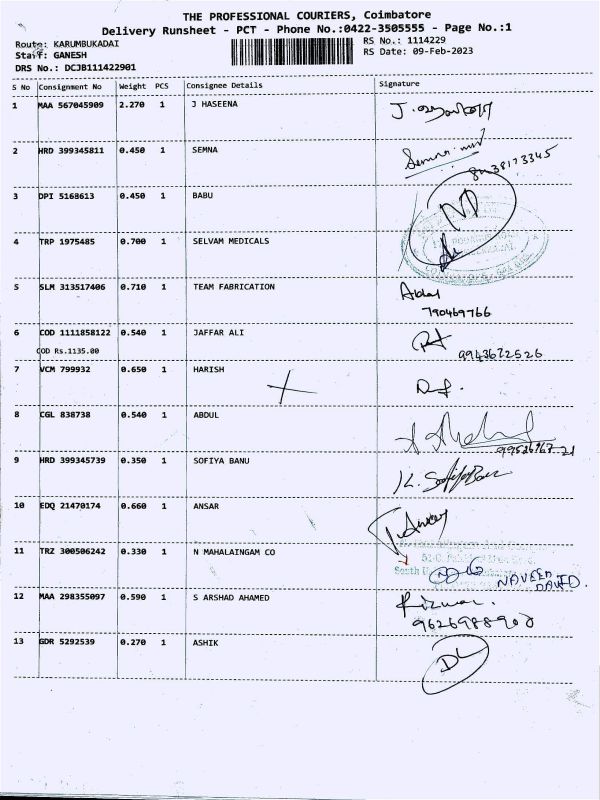 THE PROFESSIONAL COURIERS, Coimbatore
Delivery Runsheet - PCT - Phone No.:0422-3505555 - Page No.:1
Route: KARUMBUKADAI
RS No.: 1114229
Staff: GANESH
RS Date: 09-Feb-2023
DRS No.: DCJB111422901
S No Consignment No Weight PCS Consignee Details Signature
1 MAA 567045909 2.270 1 J HASEENA
2 HRD 399345811 0.450 1 SEMNA
3 DPI 5168613 0.450 1 BABU ND
4 TRP 1975485 0.700 1 SELVAM MEDICALS
5 SLM 313517406 0.710 1 TEAM FABRICATION Abdul
790469766
6 COD 1111858122 0.540 1 JAFFAR ALI
COD Rs.1135.00 9943672526
7 VCM 799932 0.650 1 HARISH
8 CGL 838738 0.540 1 ABDUL
9 HRD 399345739 0.350 1 SOFIYA BANU
10 EDQ 21470174 0.660 1 ANSAR
11 TRZ 300506242 0.330 1 N MAHALAINGAM CO
South
NAVEEN
DAVID.
12 MAA 298355097 0.590 1 S ARSHAD AHAMED Rizwan.
9626988908
13 GDR 5292539 0.270 1 ASHIK DL